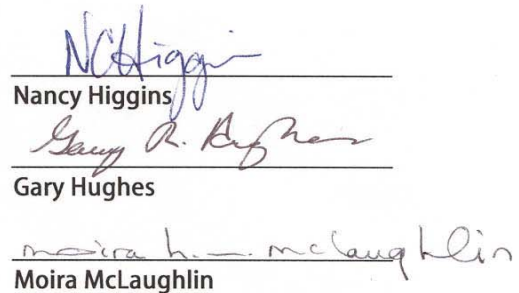 NCHiggins
Nancy Higgins
Gary R. Hughes
Gary Hughes
moira h. mclaughlin
Moira McLaughlin